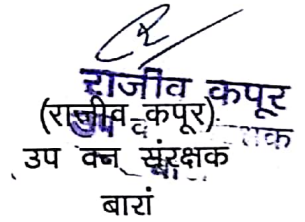 राजीव कपूर
(राजीव कपूर)
उप वन संरक्षक
बारां